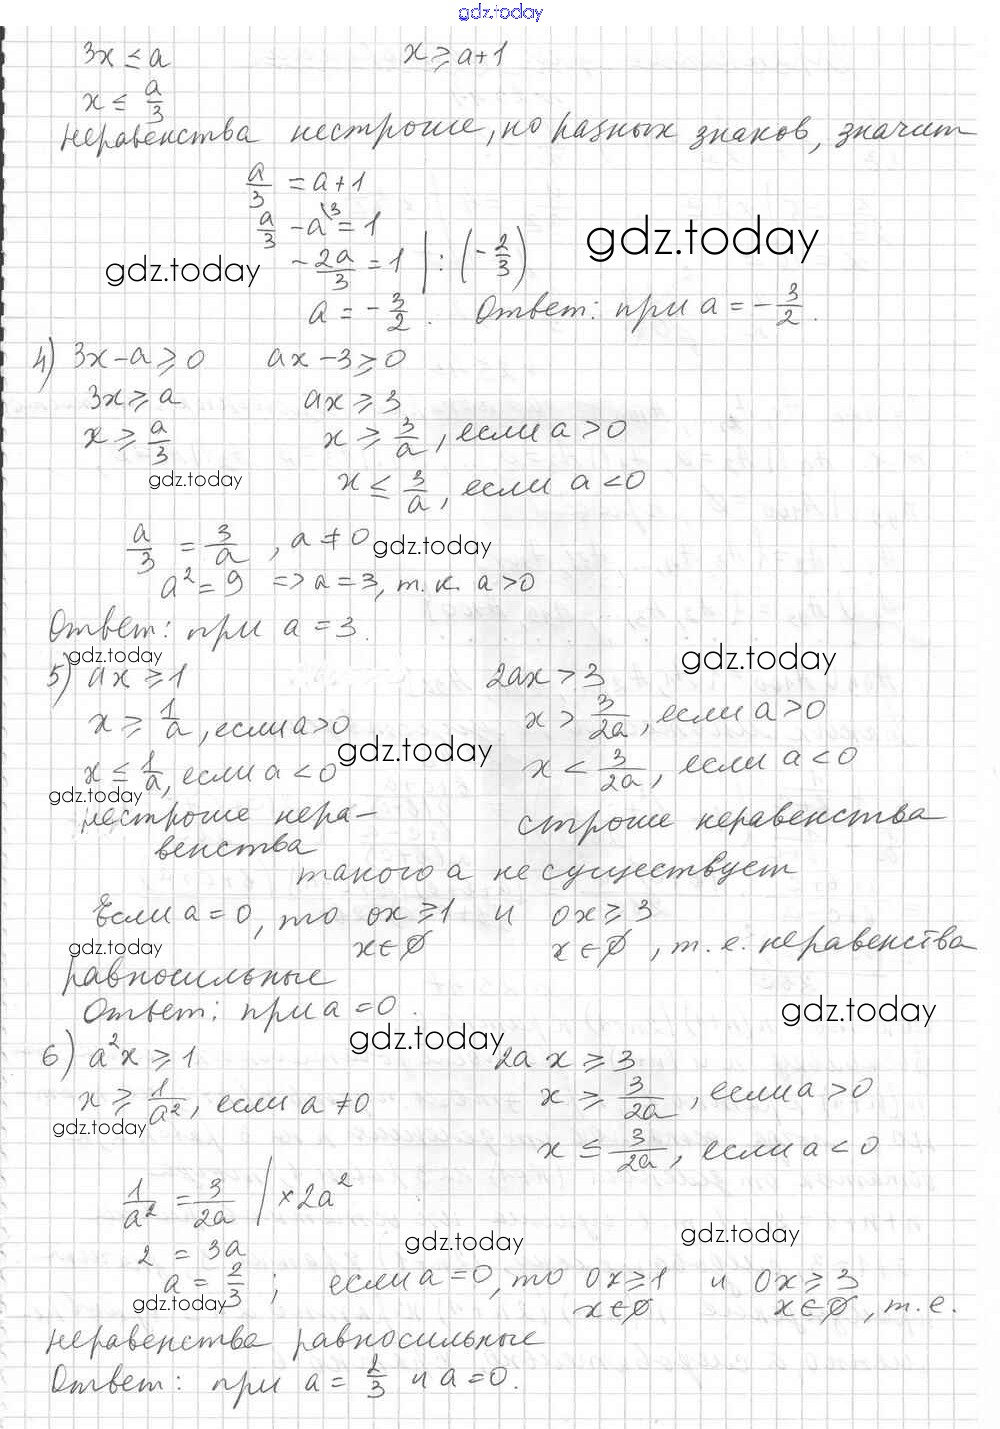 gdz.today
3x ≤ a x ≥ a+1
x ≤ a/3
неравенства нестрогие, но разных знаков, значит
a/3 = a+1
a/3 - a\3 = 1
gdz.today
gdz.today -2a/3 = 1 | : (-2/3)
a = -3/2. Ответ: при a = -3/2.
4) 3x-a ≥ 0 ax-3 ≥ 0
3x ≥ a ax ≥ 3
x ≥ a/3 x ≥ 3/a, если a > 0
gdz.today x ≤ 3/a, если a < 0
a/3 = 3/a, a ≠ 0 gdz.today
a² = 9 => a = 3, т.к. a > 0
Ответ: при a = 3.
gdz.today gdz.today
5) ax ≥ 1 2ax > 3
x ≥ 1/a, если a > 0 x > 3/2a, если a > 0
gdz.today
x ≤ 1/a, если a < 0 x < 3/2a, если a < 0
gdz.today
нестрогие нера- строгие неравенства
венства
такого a не существует
Если a = 0, то 0x ≥ 1 и 0x ≥ 3
gdz.today x ∈ ∅ x ∈ ∅, т.е. неравенства
равносильные
Ответ: при a = 0. gdz.today
gdz.today
6) a²x ≥ 1 2ax ≥ 3
x ≥ 1/a², если a ≠ 0 x ≥ 3/2a, если a > 0
gdz.today x ≤ 3/2a, если a < 0
1/a² = 3/2a | ×2a²
2 = 3a gdz.today gdz.today
a = 2/3; если a = 0, то 0x ≥ 1 и 0x ≥ 3
gdz.today x ∈ ∅ x ∈ ∅, т.е.
неравенства равносильные
Ответ: при a = 2/3 и a = 0.